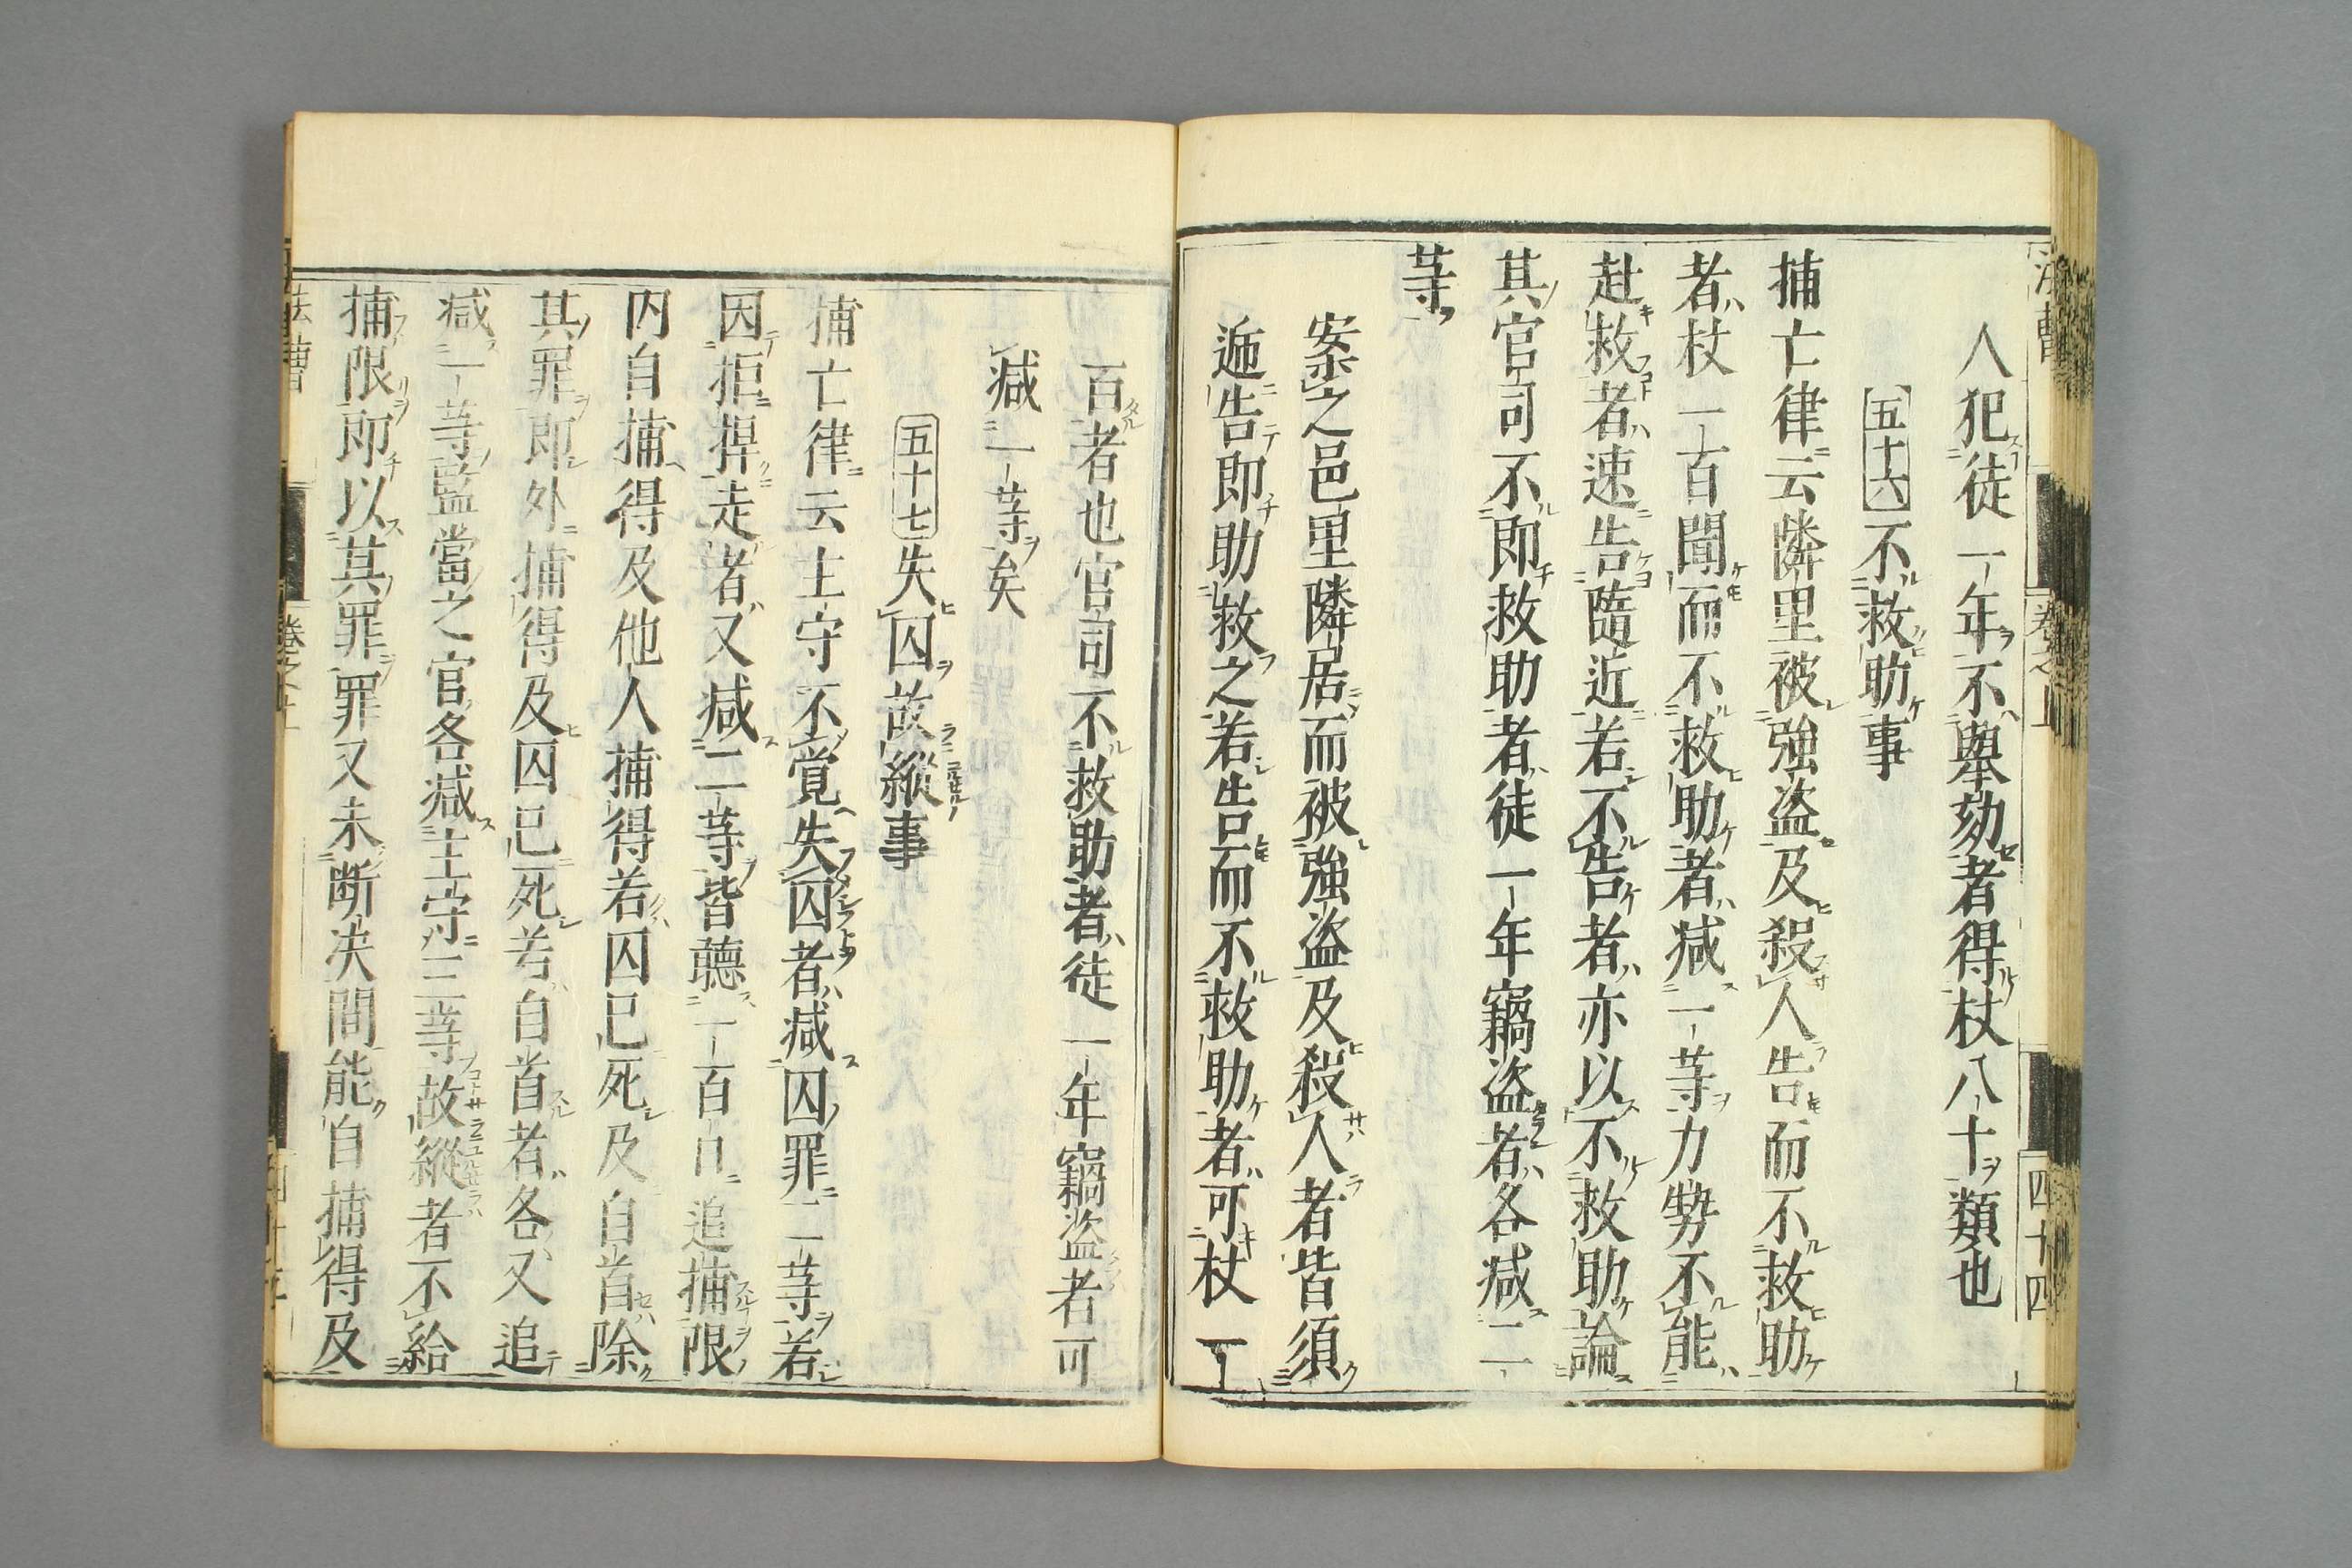 人犯徒一年不擧劾者得杖八十類也
五十六 不救助事
捕亡律云隣里被強盗及殺人告而不救助
者杖一百聞而不救助者减一等力勢不能
赴救者速告隨近若不告者亦以不救助論
其官司不即救助者徒一年竊盗者各减二
等
案之邑里隣居而被強盗及殺人者皆須
逓告即助救之若告而不救助者可杖一
四十四
百者也官司不救助者徒一年竊盗者可
减一等矣
五十七 失囚故縱事
捕亡律云主守不覚失囚者减囚罪二等若
因拒捍走者又减二等皆聽一百日追捕限
内自捕得及他人捕得若囚已死及自首除
其罪即外捕得及囚已死若自首者各又追
减一等監當之官各减主守三等故縱者不給
捕限即以其罪罪又未断决間能自捕得及